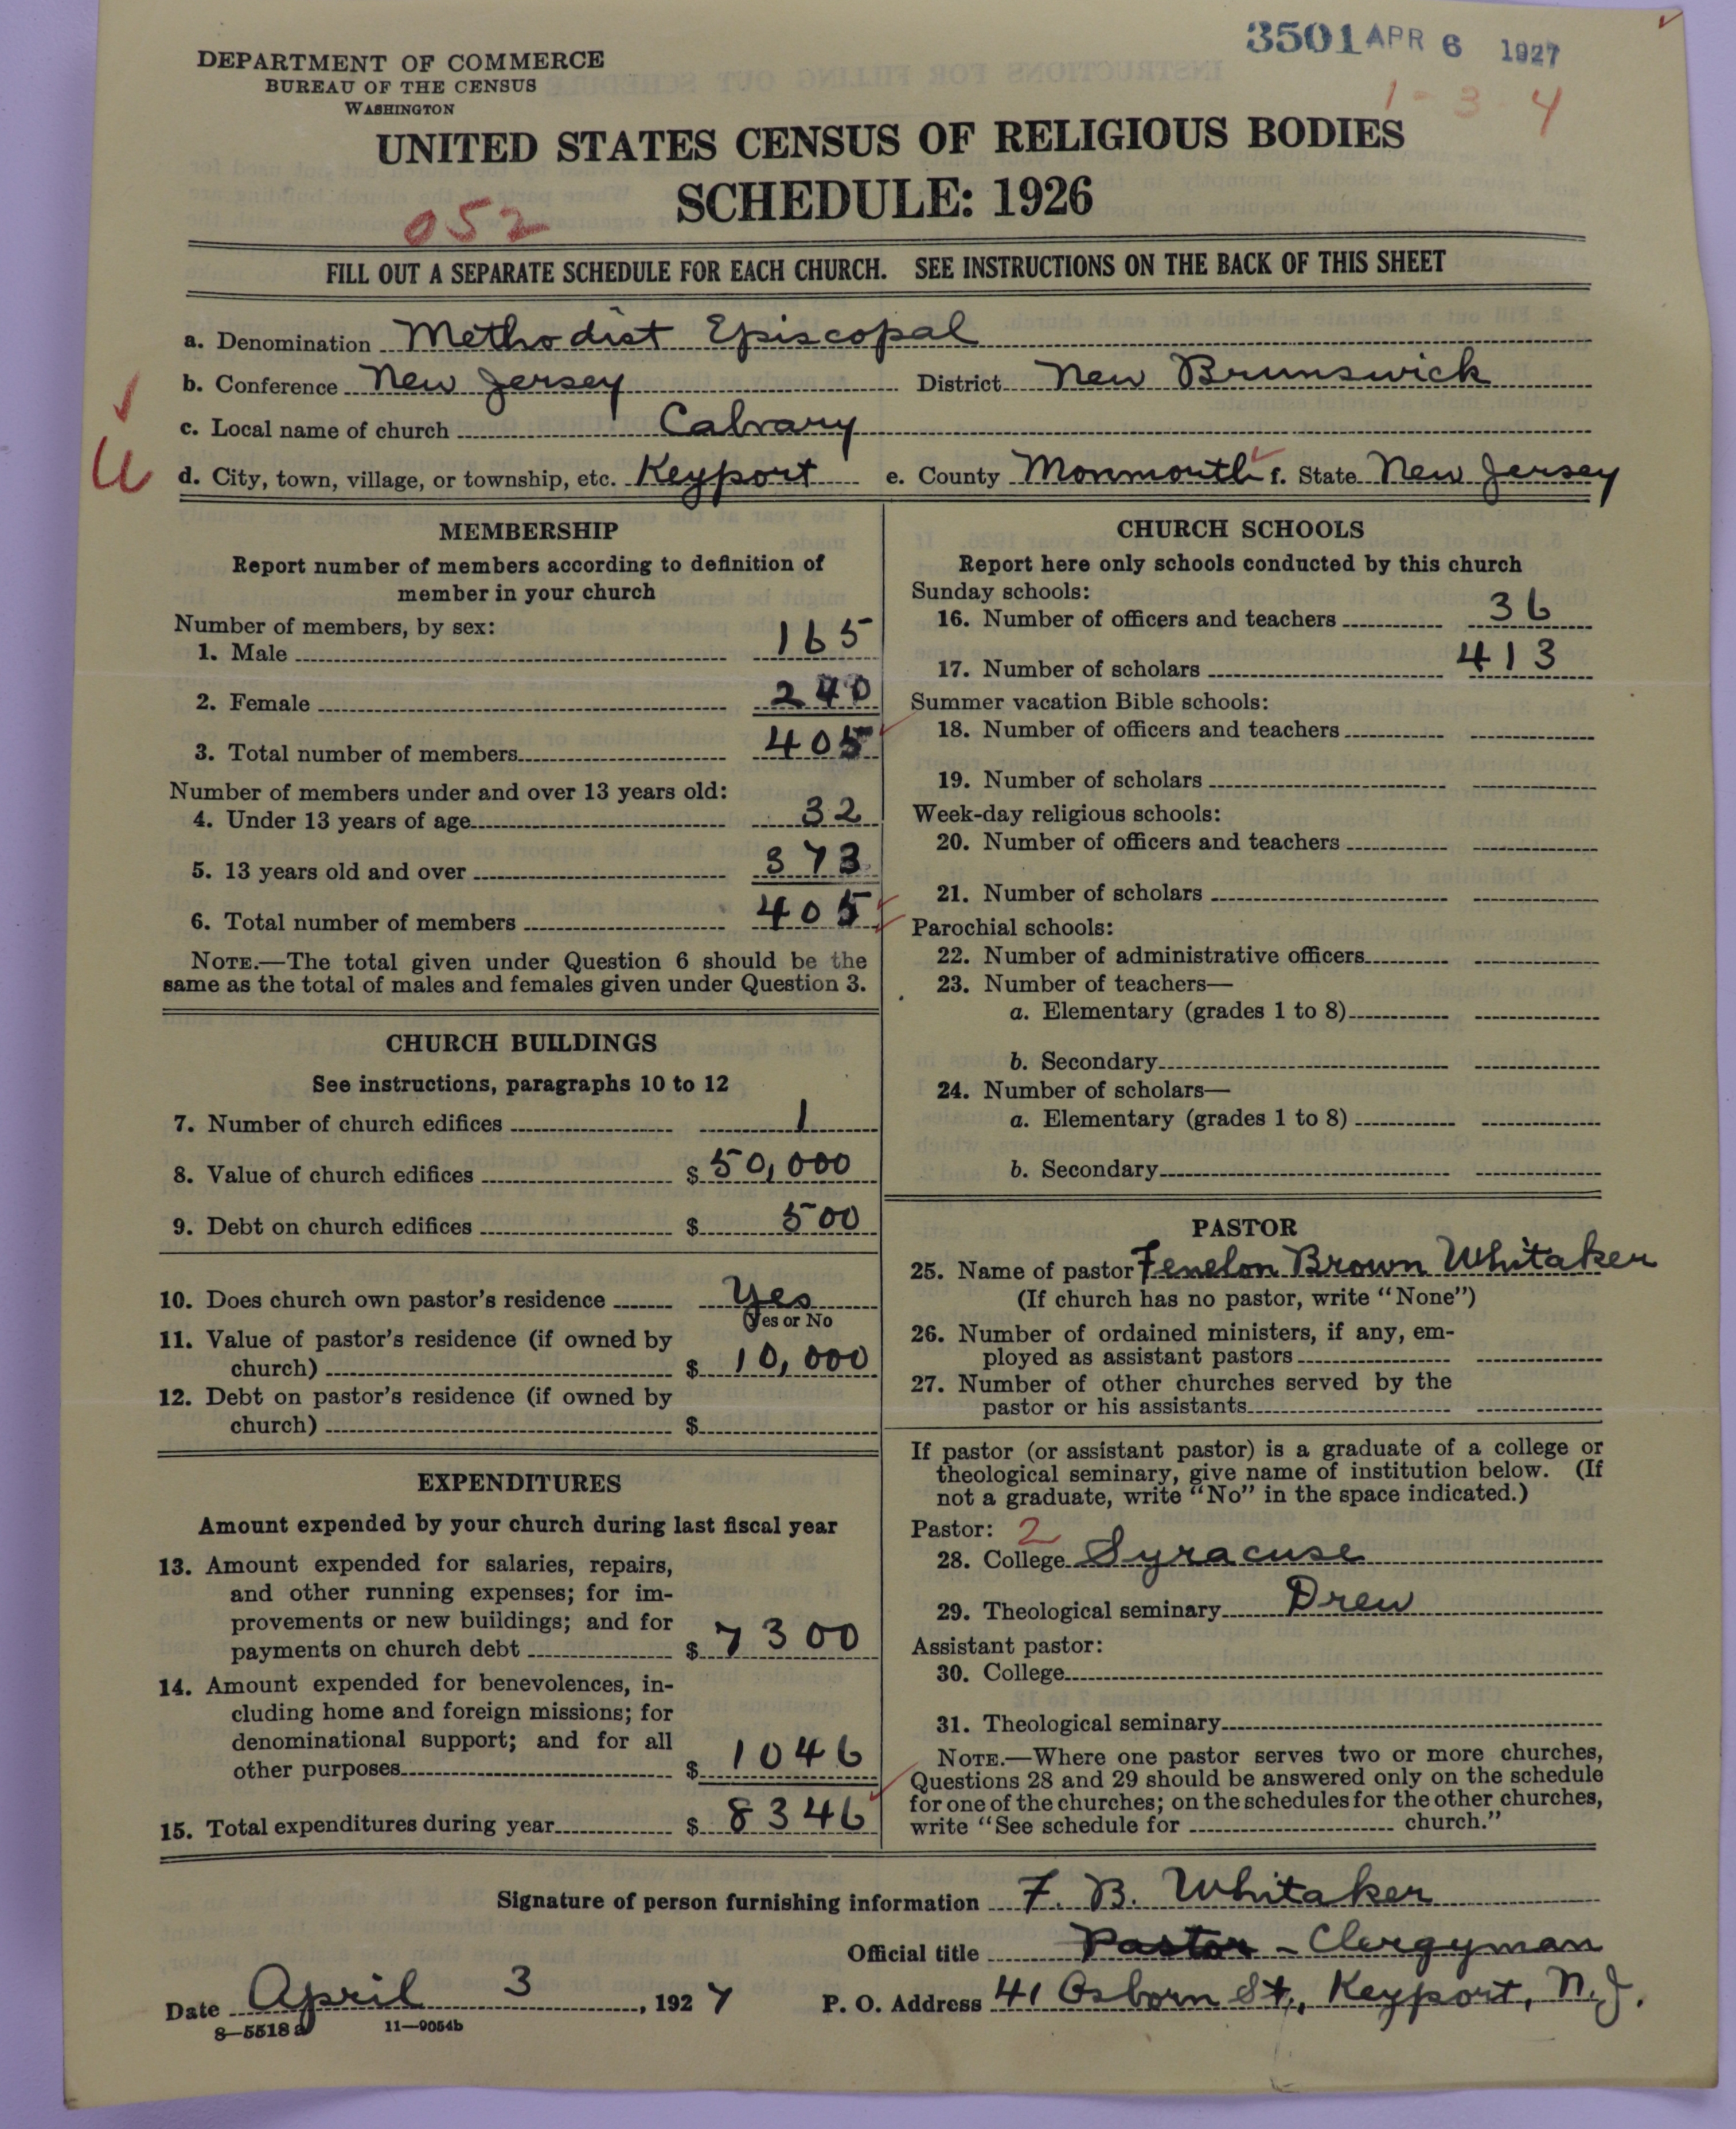 3501 APR 6 1927
1-3 4
DEPARTMENT OF COMMERCE
BUREAU OF THE CENSUS
WASHINGTON
UNITED STATES CENSUS OF RELIGIOUS BODIES
SCHEDULE: 1926
052
FILL OUT A SEPARATE SCHEDULE FOR EACH CHURCH. SEE INSTRUCTIONS ON THE BACK OF THIS SHEET
a. Denomination Methodist Episcopal
b. Conference New Jersey District New Brunswick
c. Local name of church Calvary
d. City, town, village, or township, etc. Keyport e. County Monmouth f. State New Jersey
MEMBERSHIP
Report number of members according to definition of
member in your church
Number of members, by sex:
1. Male 165
2. Female 240
3. Total number of members 405
Number of members under and over 13 years old:
4. Under 13 years of age 32
5. 13 years old and over 373
6. Total number of members 405
NOTE.—The total given under Question 6 should be the
same as the total of males and females given under Question 3.
CHURCH BUILDINGS
See instructions, paragraphs 10 to 12
7. Number of church edifices 1
8. Value of church edifices $ 50,000
9. Debt on church edifices $ 500
10. Does church own pastor's residence Yes
(Yes or No
11. Value of pastor's residence (if owned by
church) $ 10,000
12. Debt on pastor's residence (if owned by
church) $
EXPENDITURES
Amount expended by your church during last fiscal year
13. Amount expended for salaries, repairs,
and other running expenses; for im-
provements or new buildings; and for
payments on church debt $ 7300
14. Amount expended for benevolences, in-
cluding home and foreign missions; for
denominational support; and for all
other purposes $ 1046
15. Total expenditures during year $ 8346
CHURCH SCHOOLS
Report here only schools conducted by this church
Sunday schools:
16. Number of officers and teachers 36
17. Number of scholars 413
Summer vacation Bible schools:
18. Number of officers and teachers
19. Number of scholars
Week-day religious schools:
20. Number of officers and teachers
21. Number of scholars
Parochial schools:
22. Number of administrative officers
23. Number of teachers—
a. Elementary (grades 1 to 8)
b. Secondary
24. Number of scholars—
a. Elementary (grades 1 to 8)
b. Secondary
PASTOR
25. Name of pastor Fenelon Brown Whitaker
(If church has no pastor, write "None")
26. Number of ordained ministers, if any, em-
ployed as assistant pastors
27. Number of other churches served by the
pastor or his assistants
If pastor (or assistant pastor) is a graduate of a college or
theological seminary, give name of institution below. (If
not a graduate, write "No" in the space indicated.)
Pastor: 2
28. College Syracuse
29. Theological seminary Drew
Assistant pastor:
30. College
31. Theological seminary
NOTE.—Where one pastor serves two or more churches,
Questions 28 and 29 should be answered only on the schedule
for one of the churches; on the schedules for the other churches,
write "See schedule for church."
Signature of person furnishing information F. B. Whitaker
Official title Pastor - Clergyman
Date April 3, 1927 P. O. Address 41 Osborn St., Keyport, N.J.
8—5518 a 11—9054b